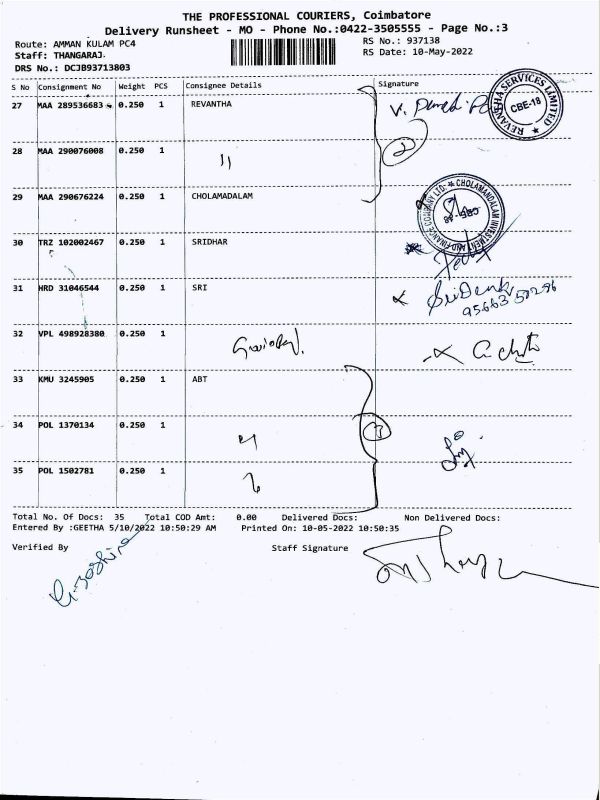 THE PROFESSIONAL COURIERS, Coimbatore
Delivery Runsheet - MO - Phone No.:0422-3505555 - Page No.:3
Route: AMMAN KULAM PC4
RS No.: 937138
Staff: THANGARAJ
RS Date: 10-May-2022
DRS No.: DCJB93713803
S No Consignment No Weight PCS Consignee Details Signature
27 MAA 289536683 0.250 1 REVANTHA
REVANTHA SERVICES LIMITED CBE-18
28 MAA 290076008 0.250 1 11
2
29 MAA 290676224 0.250 1 CHOLAMADALAM
CHOLAMANDALAM INVESTMENT AND FINANCE COMPANY LTD.
30 TRZ 102002467 0.250 1 SRIDHAR
31 HRD 31046544 0.250 1 SRI
32 VPL 498928380 0.250 1
33 KMU 3245905 0.250 1 ABT
34 POL 1370134 0.250 1
35 POL 1502781 0.250 1
Total No. Of Docs: 35 Total COD Amt: 0.00 Delivered Docs: Non Delivered Docs:
Entered By :GEETHA 5/10/2022 10:50:29 AM Printed On: 10-05-2022 10:50:35
Verified By Staff Signature